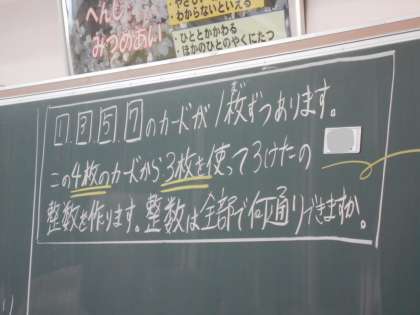 へんじ
みつめあい
わからないといえる
・ひととかかわる
・ほかのひとのやくにたつ
1 3 5 7 のカードが1枚ずつあります。
この4枚のカードから3枚を使って3けたの
整数を作ります。整数は全部で何通りできますか。